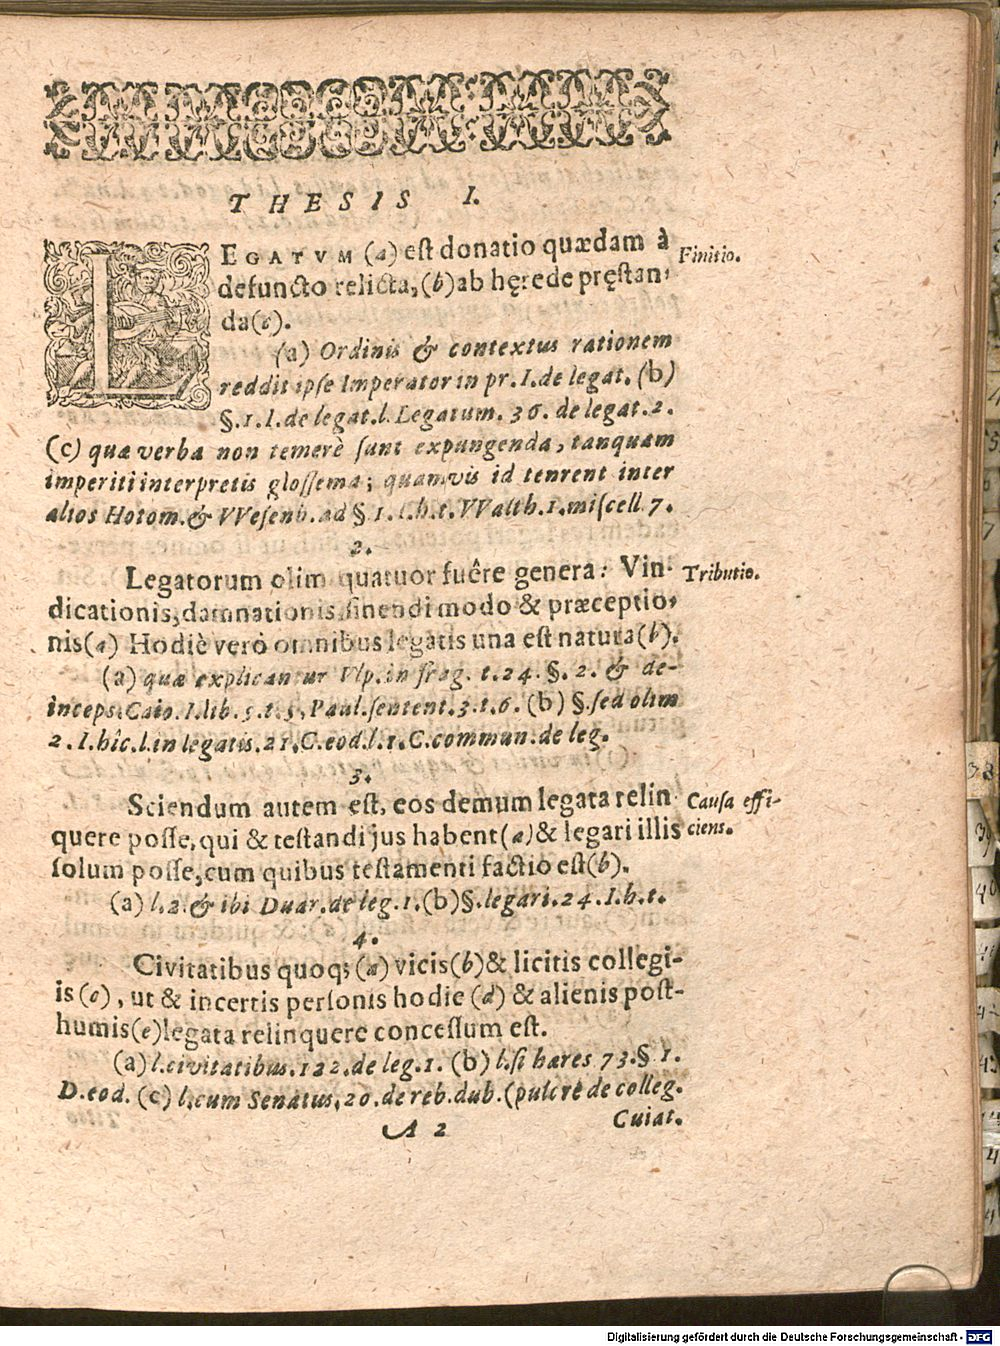 THESIS I.
LEGATVM (a) eſt donatio quædam à
Finitio.
defuncto relicta, (b) ab hęrede pręſtan-
da (c).
(a) Ordinis & contextus rationem
reddit ipſe Imperator in pr. I. de legat. (b)
§. 1. I. de legat. l. Legatum. 36. de legat. 2.
(c) quæ verba non temerè ſunt expungenda, tanquam
imperiti interpretis gloſſema; quamvis id tenrent inter
alios Hotom. & VVeſenb. ad §. 1. I. h. t. VValth. 1. miſcell. 7.
2.
Legatorum olim quatuor fuêre genera: Vin-
Tributio.
dicationis, damnationis, ſinendi modo & præceptio-
nis (a) Hodiè verò omnibus legatis una eſt natura (b).
(a) quæ explicantur Vlp. in frag. t. 24. §. 2. & de-
inceps. Caio. I. lib. 5. t. 5. Paul. ſentent. 3. t. 6. (b) §. ſed olim
2. I. hîc. l. in legatis. 21. C. eod. l. 1. C. commun. de leg.
3.
Sciendum autem eſt, eos demum legata relin
Cauſa effi-
quere poſſe, qui & teſtandi jus habent (a) & legari illis
ciens.
ſolum poſſe, cum quibus teſtamenti factio eſt (b).
(a) l. 2. & ibi Duar. de leg. 1. (b) §. legari. 24. I. h. t.
4.
Civitatibus quoq; (a) vicis (b) & licitis collegi-
is (c), ut & incertis perſonis hodie (d) & alienis poſt-
humis (e) legata relinquere conceſſum eſt.
(a) l. civitatibus. 122. de leg. 1. (b) l. ſi hæres 73. § 1.
D. eod. (c) l. cum Senatus, 20. de reb. dub. (pulcrè de colleg.
A 2
Cuiat.
38
39
Digitalisierung gefördert durch die Deutsche Forschungsgemeinschaft - DFG